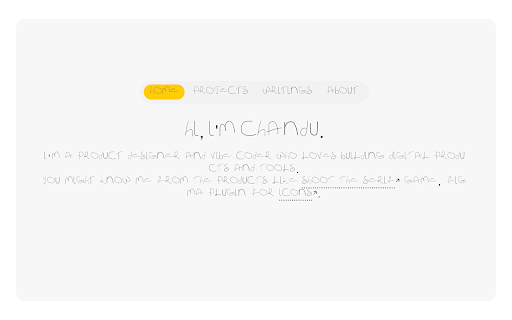 HOME PROJECTS WRITINGS ABOUT
hi, i'm Chandu.
i'm a product designer and vibe coder who loves building digital produ
cts and tools.
you might know me from the products like shoot the serif↗ game, fig
ma plugin for icons↗.